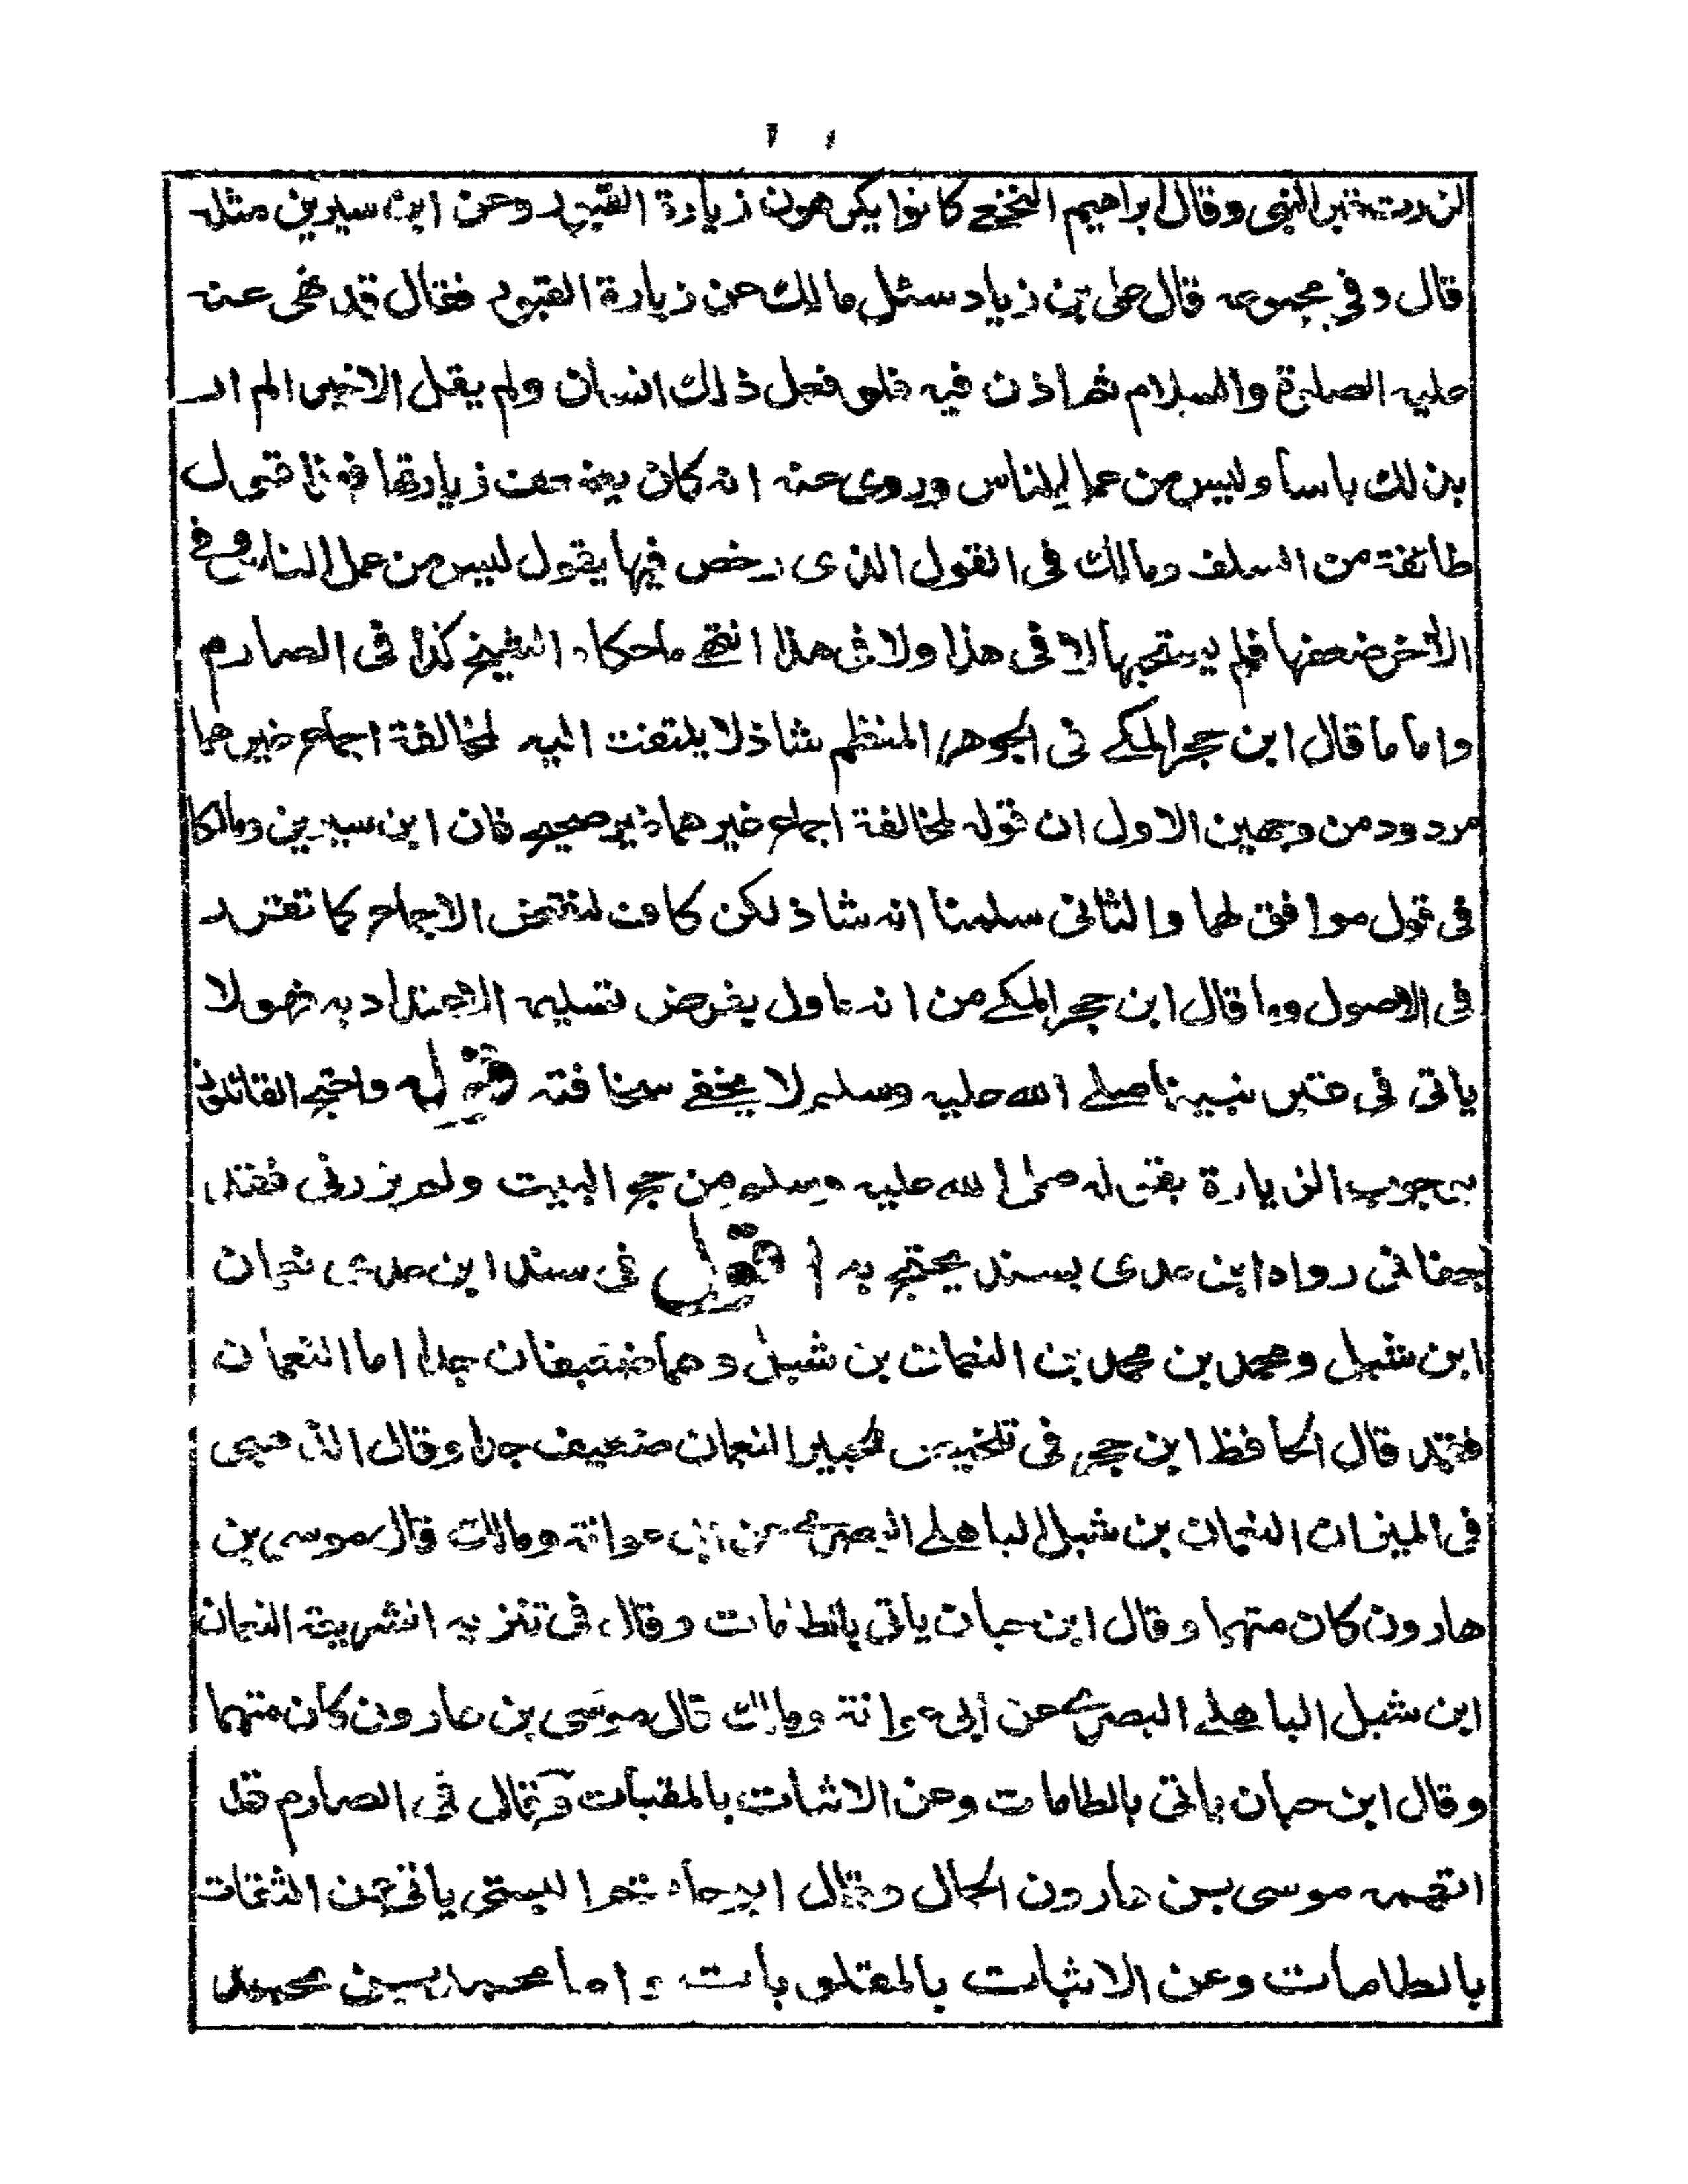 لزرت قبر النبى وقال ابراهيم النخعى كانوا يكرهون زيارة القبور وعن ابن سيرين مثله
قال وفى مجموعه قال على بن زياد سئل مالك عن زيارة القبور فقال قد نهى عنه
عليه الصلوة والسلام ثم اذن فيه فلو فعل ذلك انسان ولم يقل الا خيرا لم ار
بذلك باسا وليس من عمل الناس وروى عنه انه كان يضعف زيارتها فهذا قول
طائفة من السلف ومالك فى القول الذى رخص فيها يقول ليس من عمل الناس وفى
الآخر ضعفها فلم يستحبها لا فى هذا ولا فى هذا انتهى ما حكاه الشيخ كذا فى الصارم
واما ما قال ابن حجر المكى فى الجوهر المنظم شاذ لا يلتفت اليه لمخالفة اجماع غيرهما
مردود من وجهين الاول ان قوله لمخالفة اجماع غيرهما غير صحيح فان ابن سيرين ومالكا
فى قول موافق لهما والثانى سلمنا انه شاذ لكن كاف لنقض الاجماع كما تقرر
فى الاصول وما قال ابن حجر المكى من انه ماول بفرض تسليم الاعتداد به فهو لا
ياتى فى قبر نبينا صلى الله عليه وسلم لا يخفى سخافته قوله واحتج القائلون
بوجوب الزيارة بقوله صلى الله عليه وسلم من حج البيت ولم يزرنى فقد
جفانى رواه ابن عدى بسند يحتج به اقول فى سند ابن عدى نعمان
ابن شبل ومحمد بن محمد بن النعمان بن شبل وهما ضعيفان جدا اما النعمان
فقد قال الحافظ ابن حجر فى تلخيص الحبير النعمان ضعيف جدا وقال الذهبى
فى الميزان النعمان بن شبل الباهلى البصرى عن ابى عوانة ومالك قال موسى بن
هارون كان متهما وقال ابن حبان ياتى بالطامات وقال فى تنزيه الشريعة النعمان
ابن شبل الباهلى البصرى عن ابى عوانة ومالك قال موسى بن هارون كان متهما
وقال ابن حبان ياتى بالطامات وعن الاثبات بالمقلبات وقال فى الصارم قد
اتهمه موسى بن هارون الحمال وقال ابو حاتم البستى ياتى عن الثقات
بالطامات وعن الاثبات بالمقلوبات واما محمد بن محمد